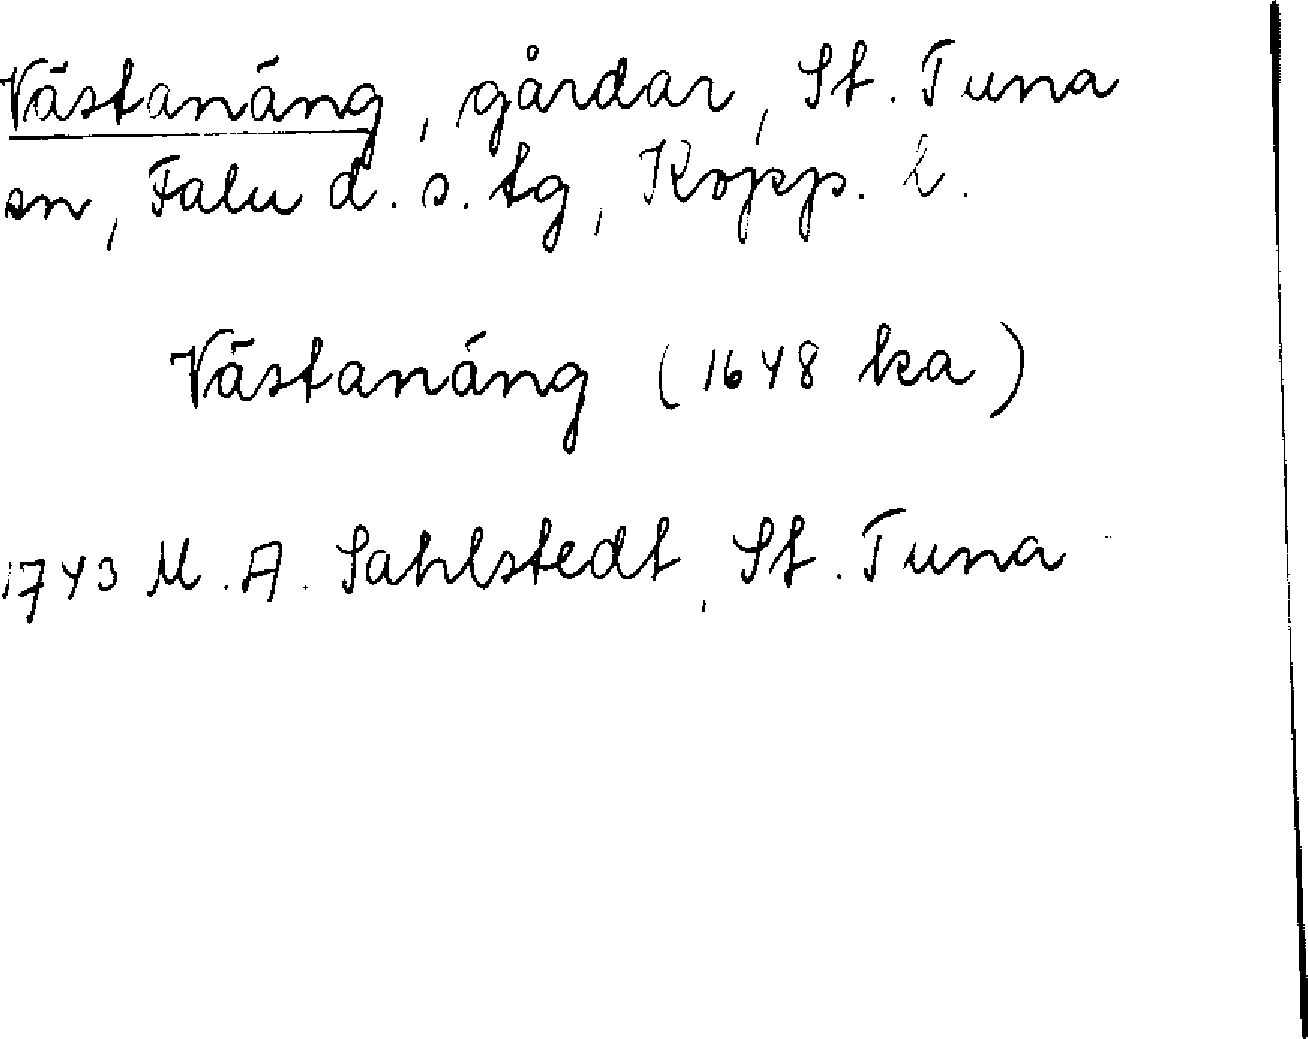 Västanäng, gårdar, St. Tuna
sn, Falu d. s. tg, Kopp. l.
Västanäng (1648 ka)
1743 M. A. Sahlstedt, St. Tuna